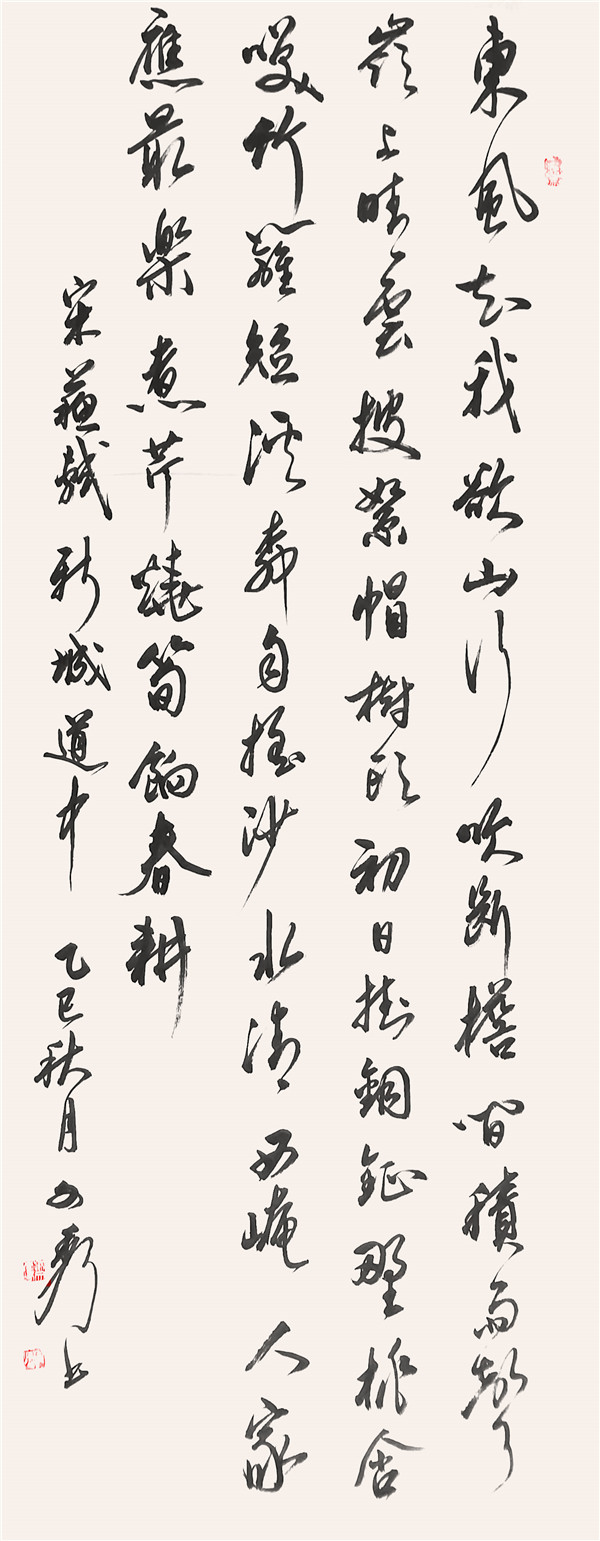 東風知我欲山行吹斷檐間積雨聲
嶺上晴雲披絮帽樹頭初日掛銅鉦野桃含
咲竹籬短溪柳自搖沙水清西崦人家
應最樂煮芹燒筍餉春耕
宋蘇軾新城道中 乙巳秋月 書